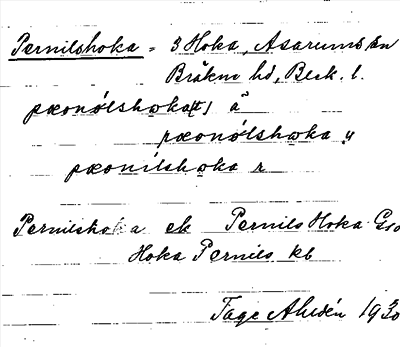 Pernilshoka = 3 Hoka, Asarums sn
Bräkne hd, Blek. l.
pæonólshoka(t) ä
pæonólshoka y
pæonilshoka r
Pernilshoka ek Pernils Hoka Gso
Hoka Pernils kb
Tage Ahldén 1930